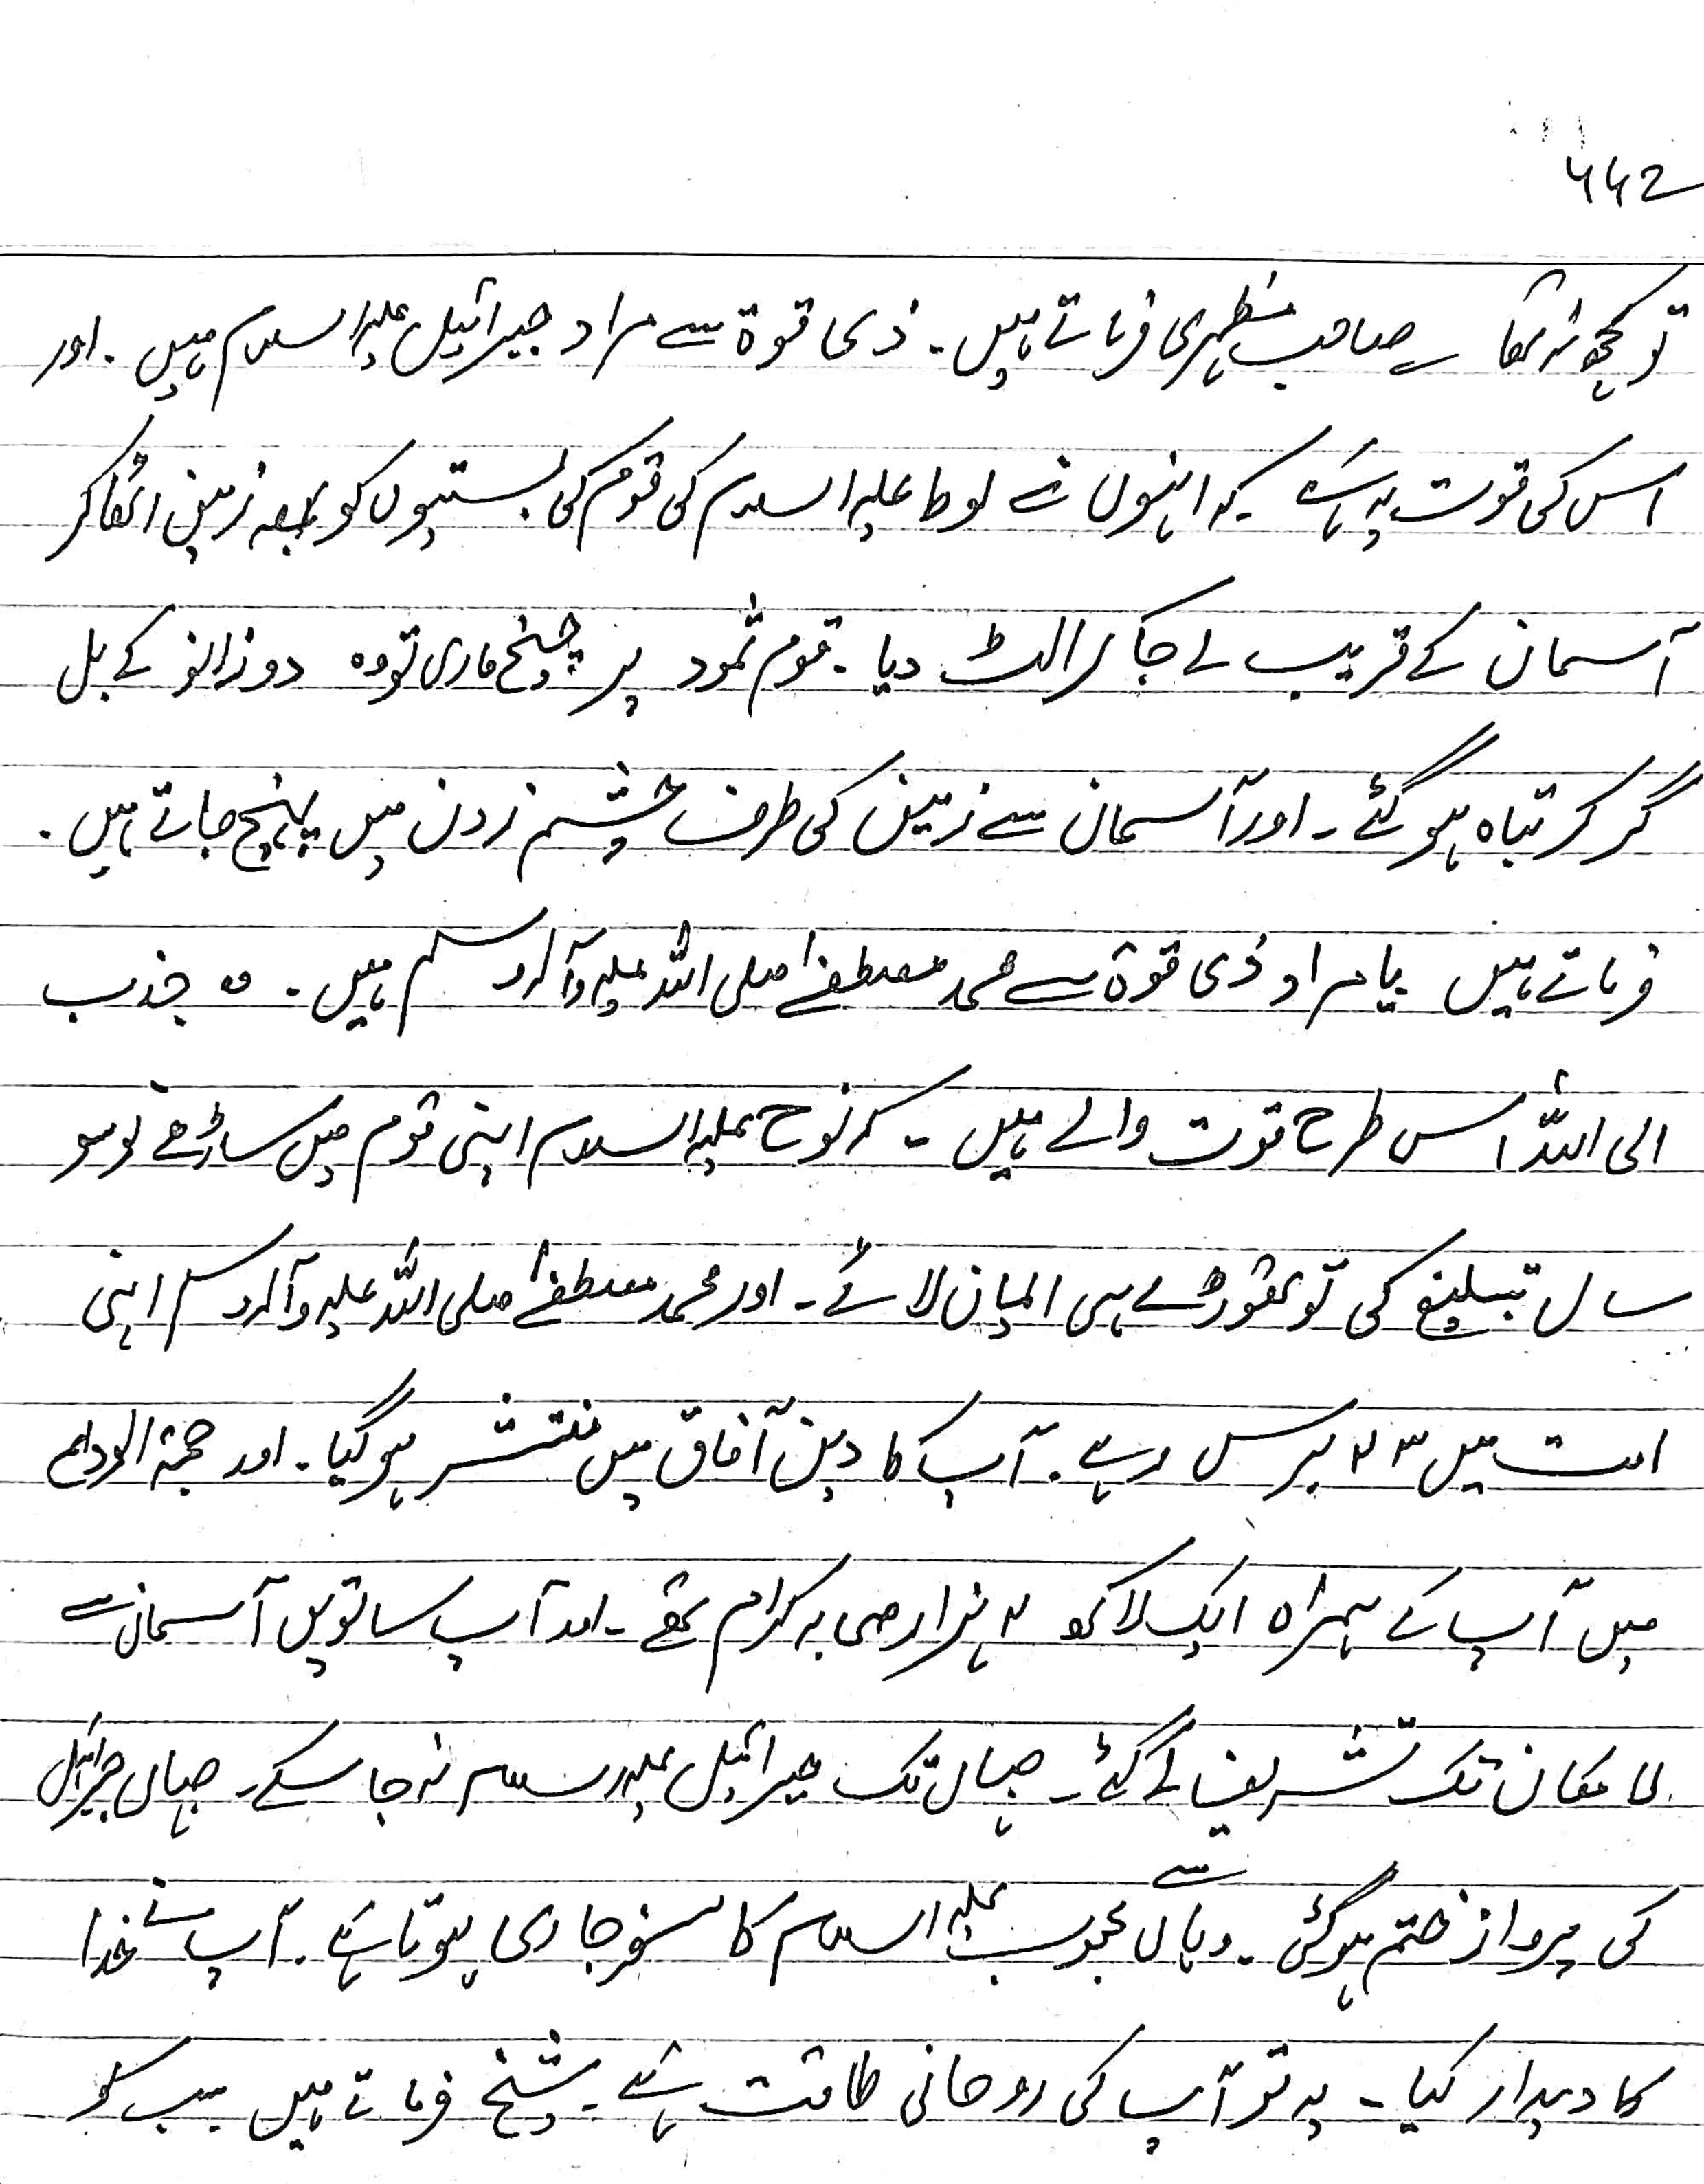 ۶۶۲
تو کچھ نہ تھا ۔ صاحب مظہری فرماتے ہیں ۔ ذی قوۃ سے مراد جبرائیل علیہ السلام ہیں ۔ اور
اس کی قوت یہ ہے کہ انہوں نے لوط علیہ السلام کی قوم کی بستیوں کو بمعہ زمین اٹھا کر
آسمان کے قریب لے جا کر الٹ دیا ۔ قوم ثمود پر چیخ ماری تو وہ دو زانو کے بل
گر کر تباہ ہو گئے ۔ اور آسمان سے زمین کی طرف چشم زدن میں پہنچ جاتے ہیں ۔
فرماتے ہیں یا مراد ذی قوۃ سے محمد مصطفےٰ صلی اللہ علیہ وآلہ وسلم ہیں ۔ وہ جذب
الی اللہ اس طرح قوت والے ہیں ۔ کہ نوح علیہ السلام اپنی قوم میں ساڑھے نو سو
سال تبلیغ کی تو تھوڑے ہی ایمان لائے ۔ اور محمد مصطفےٰ صلی اللہ علیہ وآلہ وسلم اپنی
امت میں ۲۳ برس رہے ۔ آپ کا دین آفاق میں منتشر ہو گیا ۔ اور حجۃ الوداع
میں آپ کے ہمراہ ایک لاکھ ہزار صحابہ کرام تھے ۔ اور آپ ساتویں آسمان سے
لا مکان تک تشریف لے گئے ۔ جہاں تک جبرائیل علیہ السلام نہ جا سکے ۔ جہاں جبرائیل
کی پرواز ختم ہو گئی ۔ وہاں سے محبوب علیہ السلام کا سفر جاری ہوتا ہے ۔ آپ نے خدا
کا دیدار کیا ۔ یہ تو آپ کی روحانی طاقت ہے ۔ شیخ فرماتے ہیں سب کو